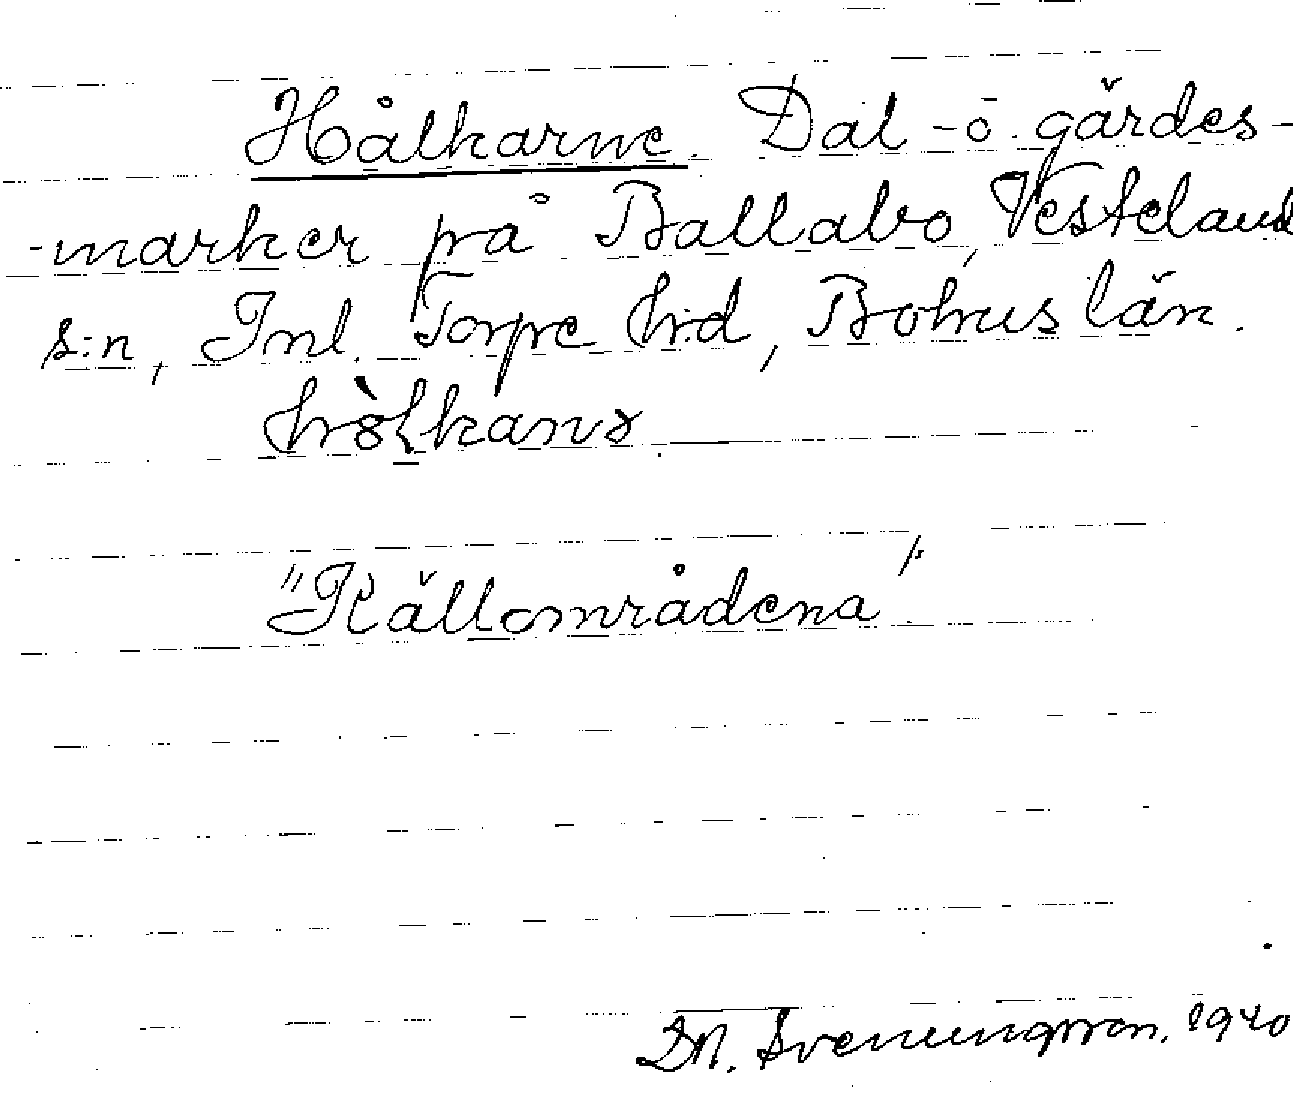 Hålkarne. Dal - o. gärdes-
-marker på Ballabo, Västeland
s:n, Inl. Torpe h:d, Bohus län.
"Källområdena"
D.A. Svenungsson. 1940